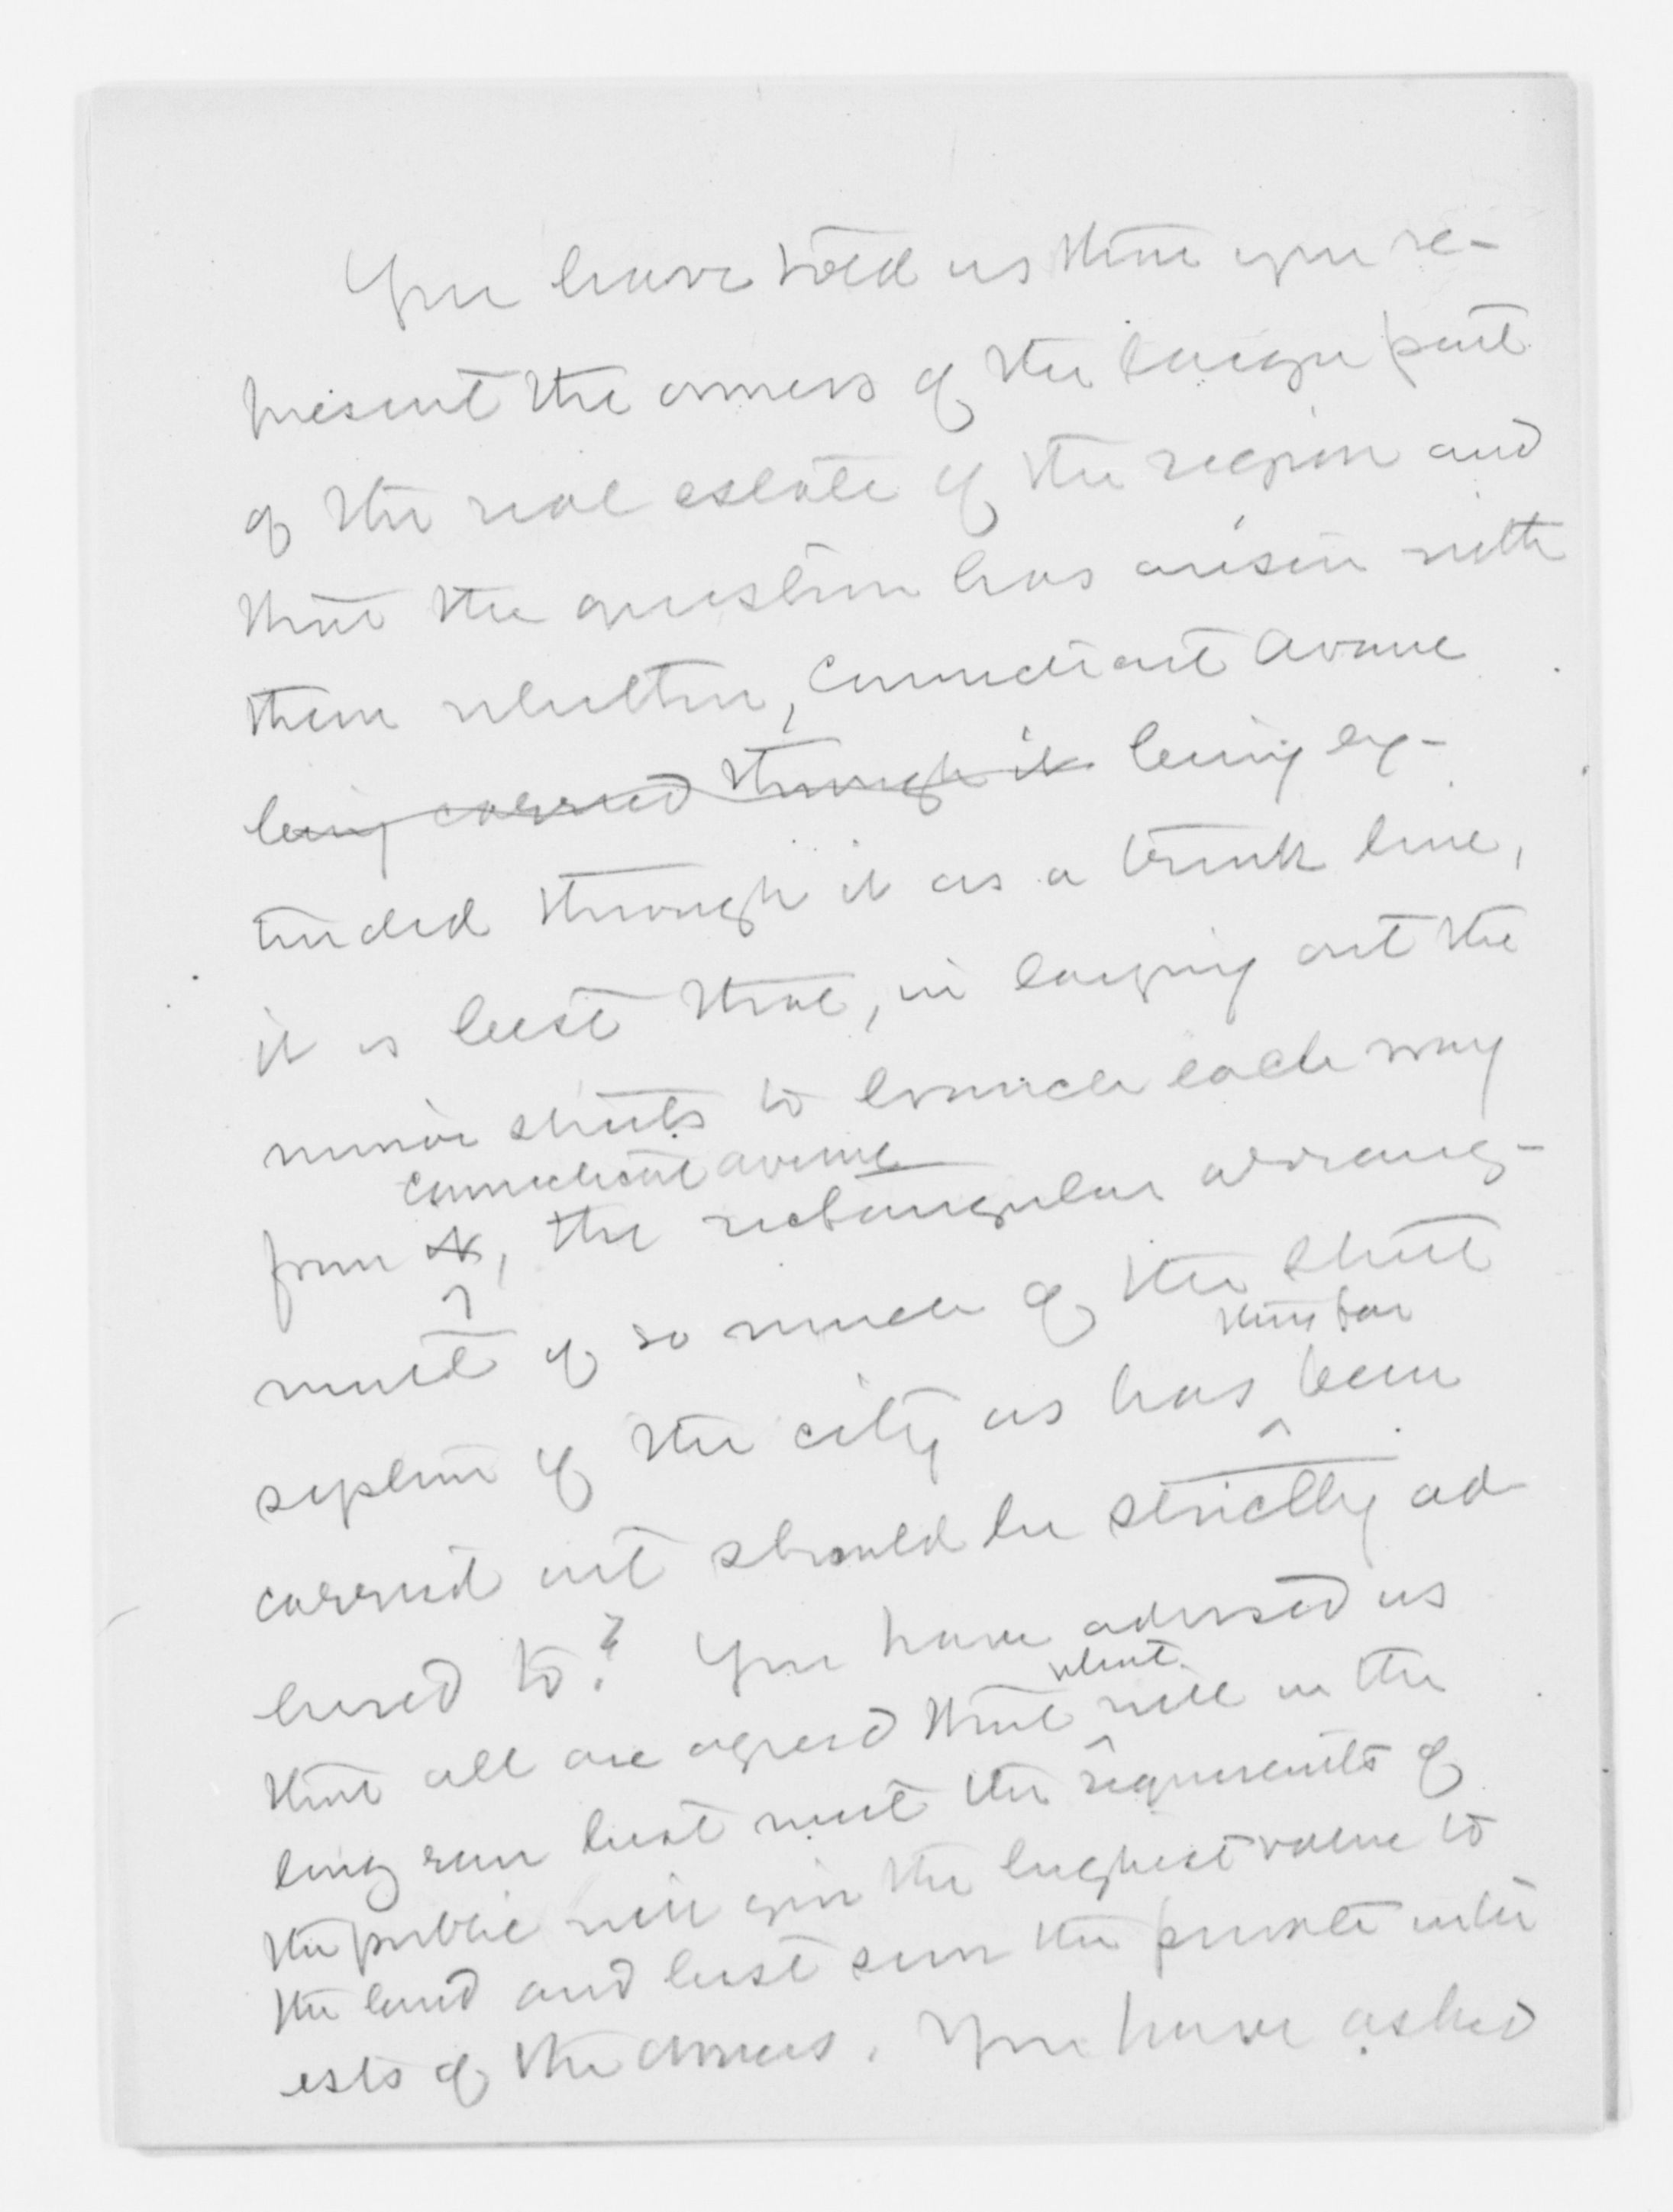 You have told us that you re-
present the owners of the larger part
of the real estate of the region and
that the question has arisen with
them whether, Connecticut Avenue
being carried through it being ex-
tended through it as a trunk line,
it is best that, in laying out the
minor streets to branch each way
Connecticut avenue
from it, the rectangular arrang-
ment of so much of the street
thus far
system of the city as has been
carried out should be strictly ad-
hered to? You have advised us
what
that all are agreed that will in the
long run best meet the requirements of
the public will give the highest value to
the land and best serve the private inter
ests of the owners. You have asked